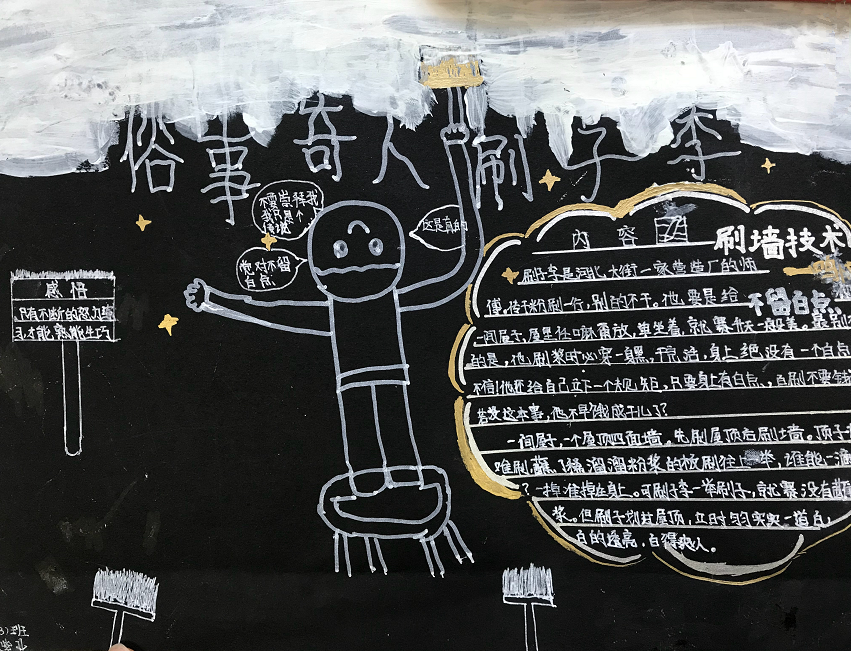 俗事奇人刷子李
不要崇拜我
我只是个
传说
这是真的
绝对不留
白点
感悟
只有不断的努力练
习,才能熟能生巧
内容
刷墙技术
不留白点
刷子李是河北大街一家营造厂的师
傅。专干粉刷一行,别的不干。他要是给
一间屋子,屋里任嘛甭放,单坐着,就赛升天一般美。最
的是,他刷浆时必穿一身黑,干完活,身上绝没有一个白点
不信他还给自己立下一个规矩,只要身上有白点,白刷不要钱
若没这本事,他不早饿成干儿了?
一间屋子,一个屋顶四面墙。先刷屋顶后刷墙。顶子
难刷,蘸了稀溜溜粉浆的板刷往上一举,谁能一滴
?一掉准掉在身上。可刷子李一举刷子,就赛没有蘸
浆。但刷子划过屋顶,立时匀匀实实一道白,
白的透亮,白得爽人。
班